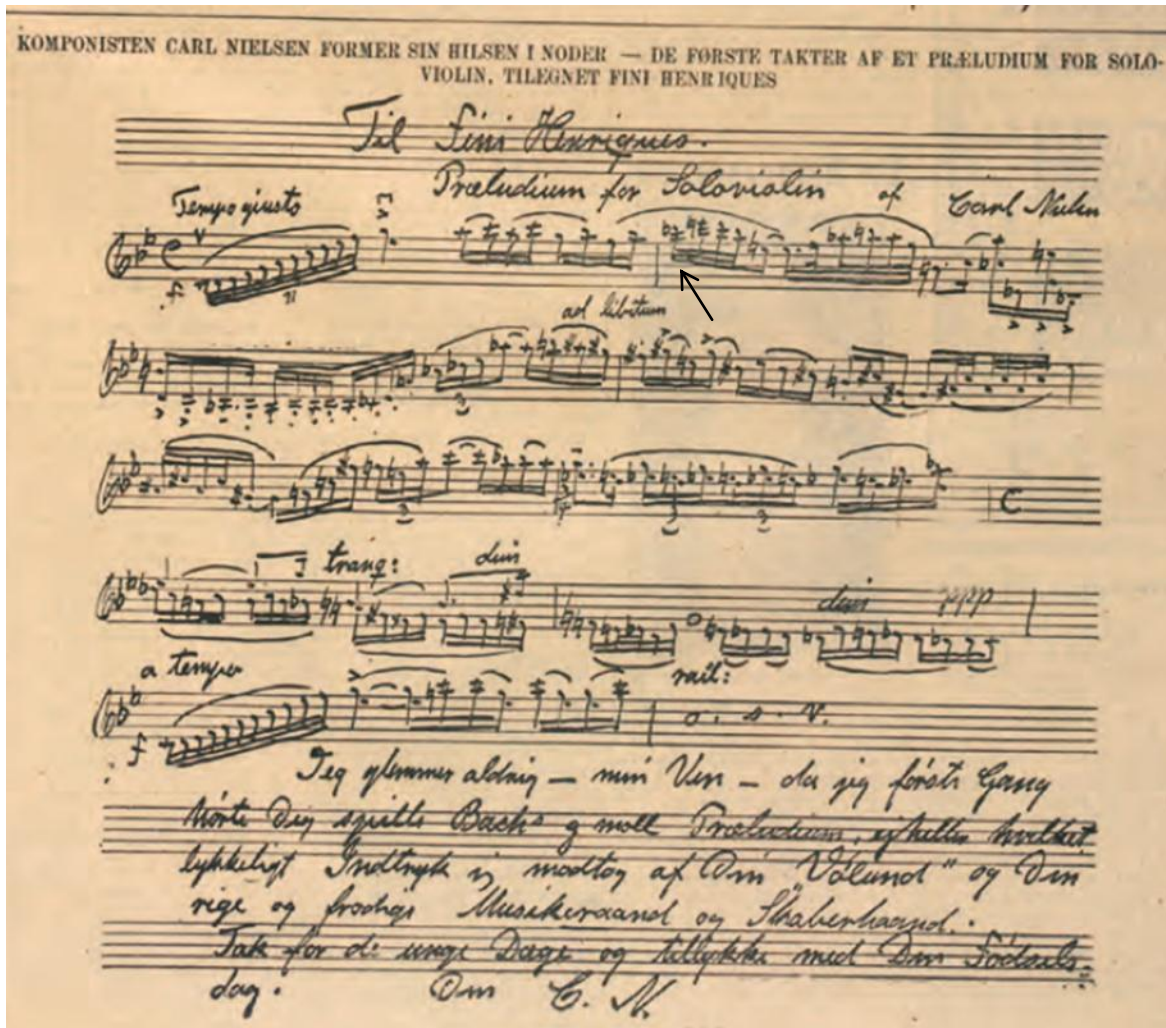 KOMPONISTEN CARL NIELSEN FORMER SIN HILSEN I NODER — DE FØRSTE TAKTER AF ET PRÆLUDIUM FOR SOLO-
VIOLIN, TILEGNET FINI HENRIQUES
Til Fini Henriques.
Præludium for Soloviolin af Carl Nielsen
Tempo giusto
f
11
ad libitum
3
3
3 3
C
tranq: dim
dim ppp
a tempo rall:
f
o. s. v.
Jeg glemmer aldrig — min Ven — da jeg første Gang
hørte Dig spille Bachs g moll Præludium, ejheller hvilket
lykkeligt Indtryk jeg modtog af Din "Vølund" og Din
rige og frodige Musikeraand og Skaberhaand.
Tak for de unge Dage og tillykke med Din Fødsels-
dag. Din C. N.